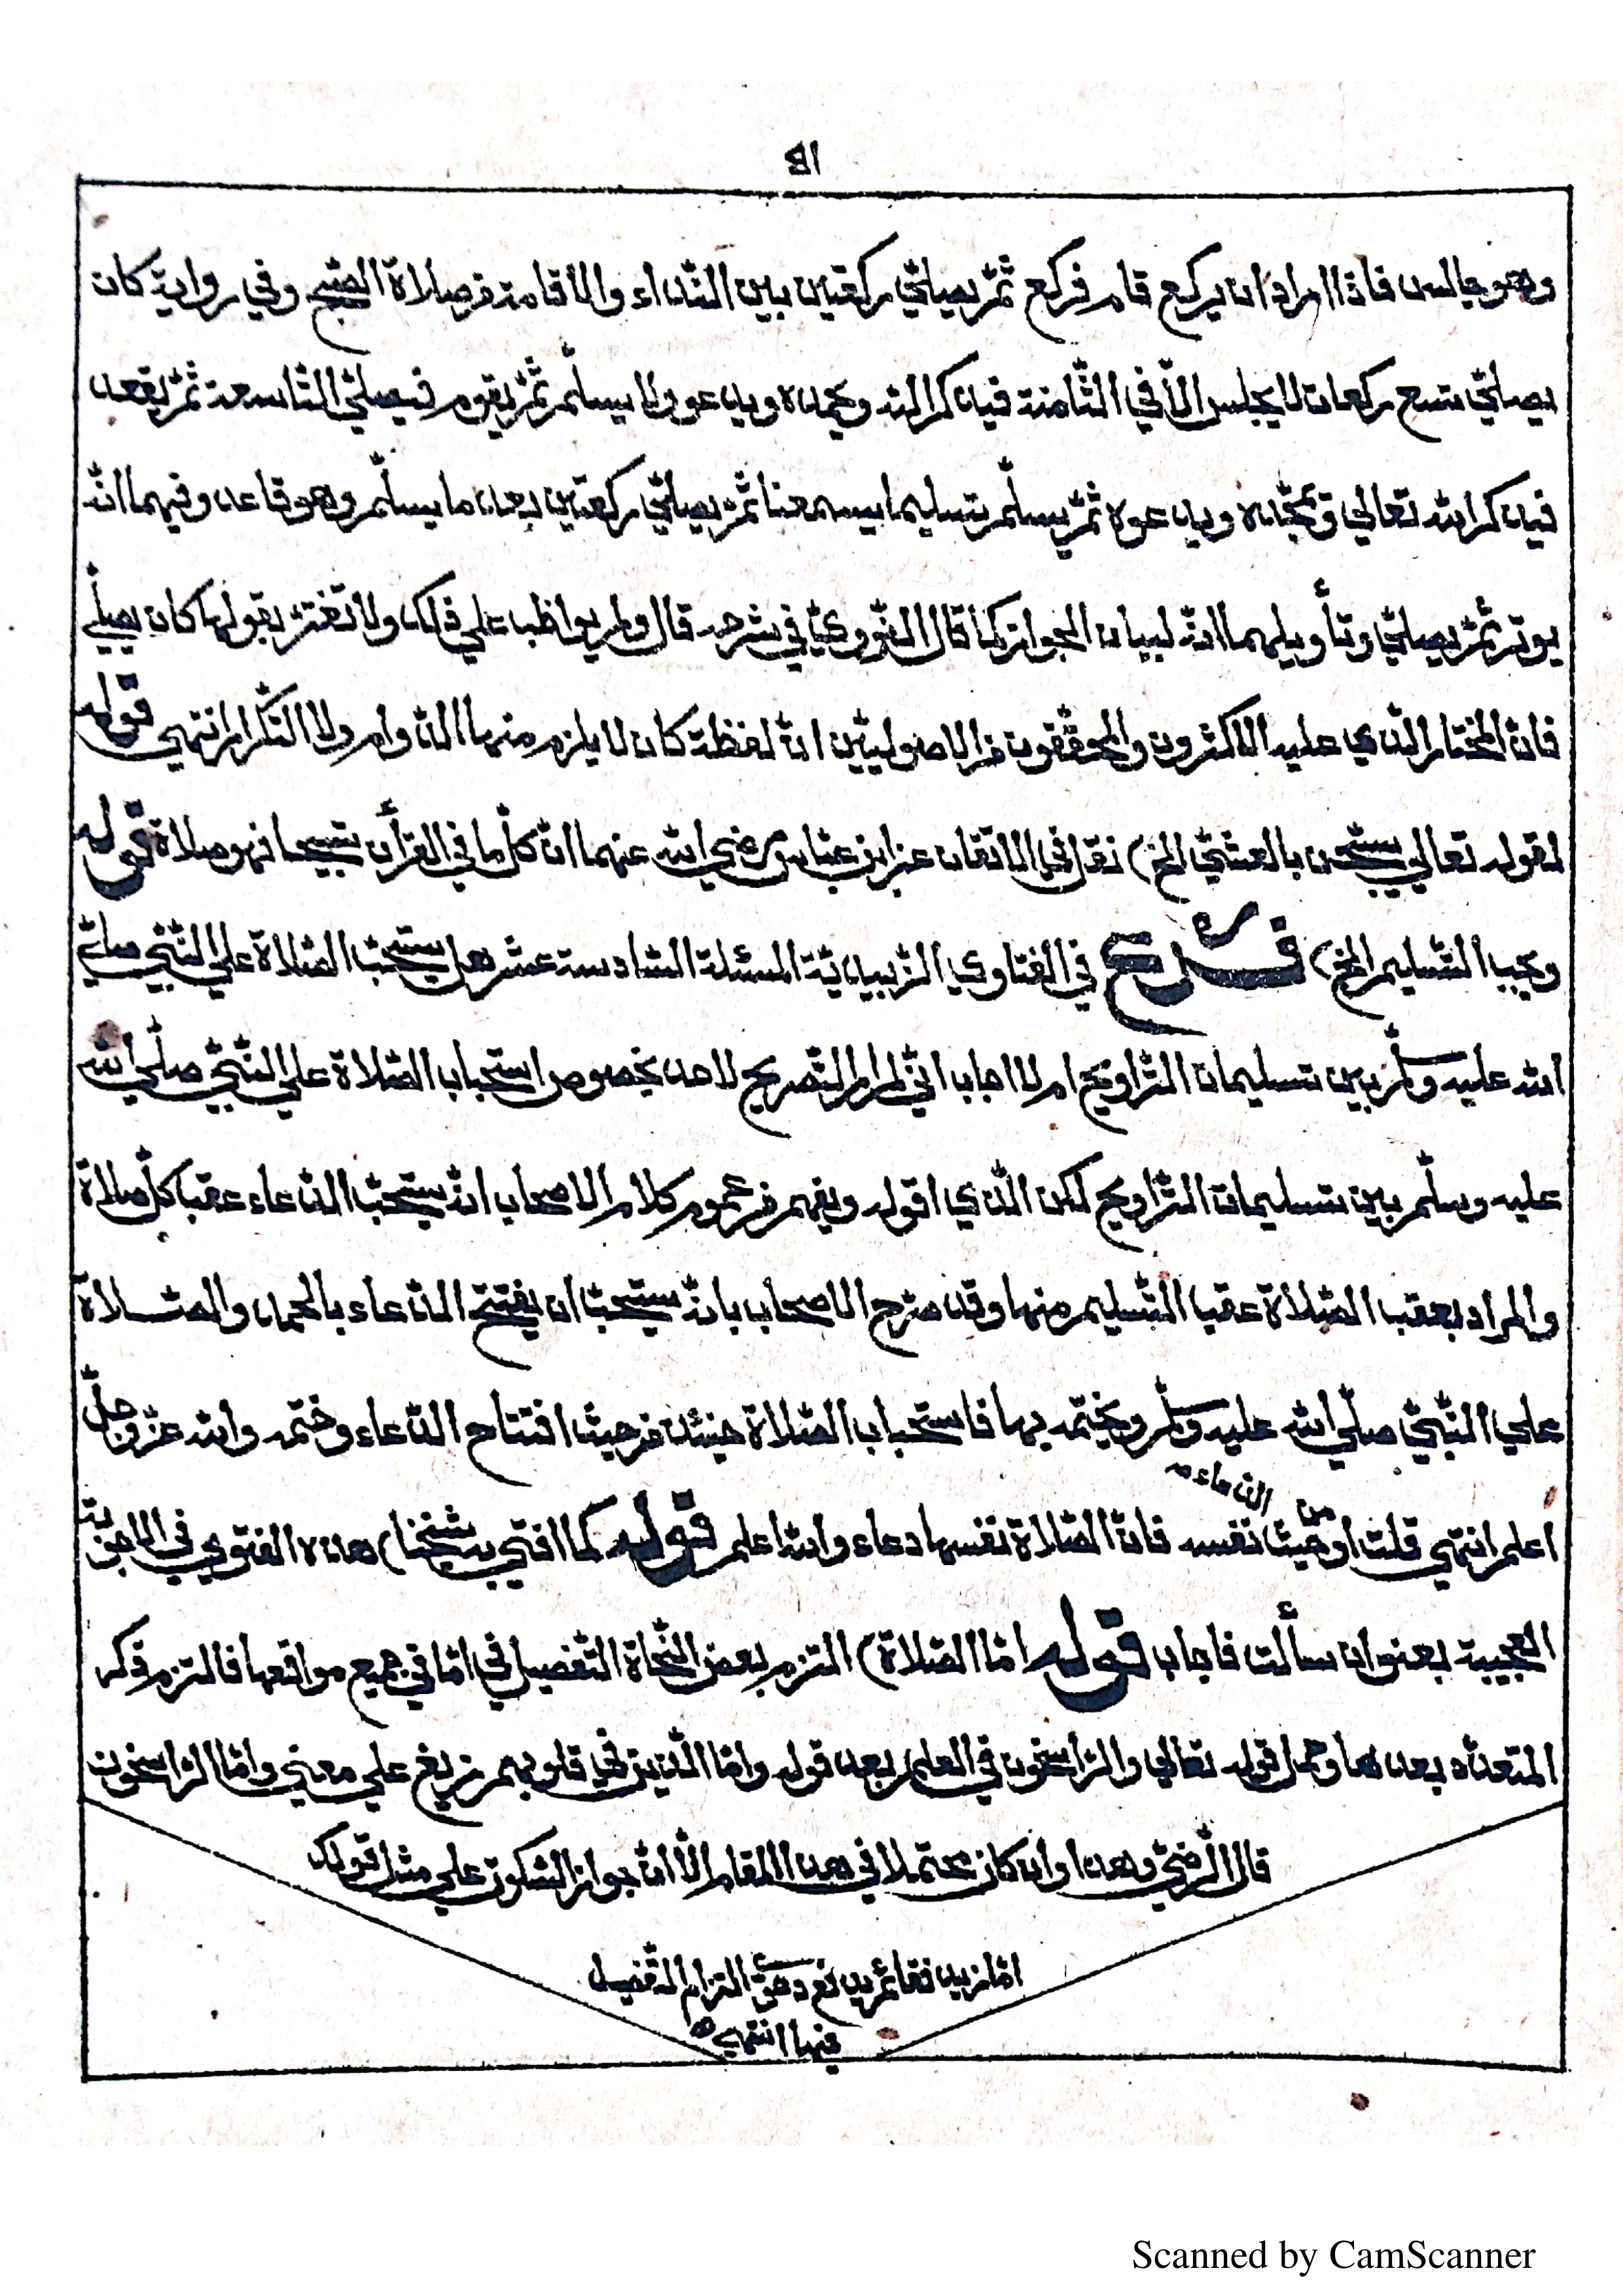 ١٤
وهو جالس فاذا اراد ان يركع قام فركع ثمّ يصلّي ركعتين بين النّداء والاقامة من صلاة الصّبح وفي رواية كان
يصلّي تسع ركعات لا يجلس الّا في الثّامنة فيذكر الله ويحمده ويدعو ولا يسلّم ثمّ يقوم فيصلّي التّاسعة ثمّ يقعد
فيذكر الله تعالي ويحمده ويدعوه ثمّ يسلّم تسليما يسمعنا ثمّ يصلّي ركعتين بعد ما يسلّم وهو قاعد وفيهما انّه
يوتر ثمّ يصلّي وتأويلهما انّه لبيان الجواز كما قال النّوويّ في شرحه قال ولم يواظب علي ذلك ولا تغترّ بقولها كان يصلّي
فانّ المختار الّذي عليه الاكثرون والمحقّقون من الاصوليّين انّ لفظة كان لا يلزم منها الدّوام ولا التّكرار انتهي قوله
لقوله تعالي يسبّحن بالعشيّ الخ) نقل في الاتقان عن ابن عبّاس رضي الله عنهما انّ كلّ ما في القرأن تسبيحا فهو صلاة قوله
ويجب التّسليم الخ) فرع في الفتاوي الزّبيديّة المسئلة السّادسة عشر هل يستحبّ الصّلاة علي النّبيّ صلّي
الله عليه وسلّم بين تسليمات التّراويح ام لا اجاب انّي لم ار التّصريح لاحد بخصوص استحباب الصّلاة علي النّبيّ صلّي الله
عليه وسلّم بين تسليمات التّراويح لكن الّذي اقوله ويفهم من عموم كلام الاصحاب انّه يستحبّ الدّعاء عقب كلّ صلاة
والمراد بعقب الصّلاة عقب التّسليم منها وقد صرّح الاصحاب بانّه يستحبّ ان يفتتح الدّعاء بالحمد والصّلاة
علي النّبيّ صلّي الله عليه وسلّم ويختمه بها فاستحباب الصّلاة حينئذ من حيث افتتاح الدّعاء وختمه والله عزّ وجلّ
اعلم انتهي قلت او من حيث الدّعاء نفسه فانّ الصّلاة نفسها دعاء والله اعلم قوله كما افتي به شيخنا) هذه الفتوي في الاجوبة
العجيبة بعنوان سألت فاجاب قوله امّا الصّلاة) التزم بعض النّحاة التّفصيل في امّا في جميع مواقعها فالتزم ذكر
المتعدّد بعدها وحمل قوله تعالي والرّاسخون في العلم بعد قوله وامّا الّذين في قلوبهم زيغ علي معني وامّا الرّاسخون
قال الرّضيّ وهذا وان كان محتملا في هذا المقام الّا انّ جواز السّكوت علي مثل قولك
امّا زيد فقائم يدفع دعوي التزام التّفصيل
فيها انتهي
Scanned by CamScanner